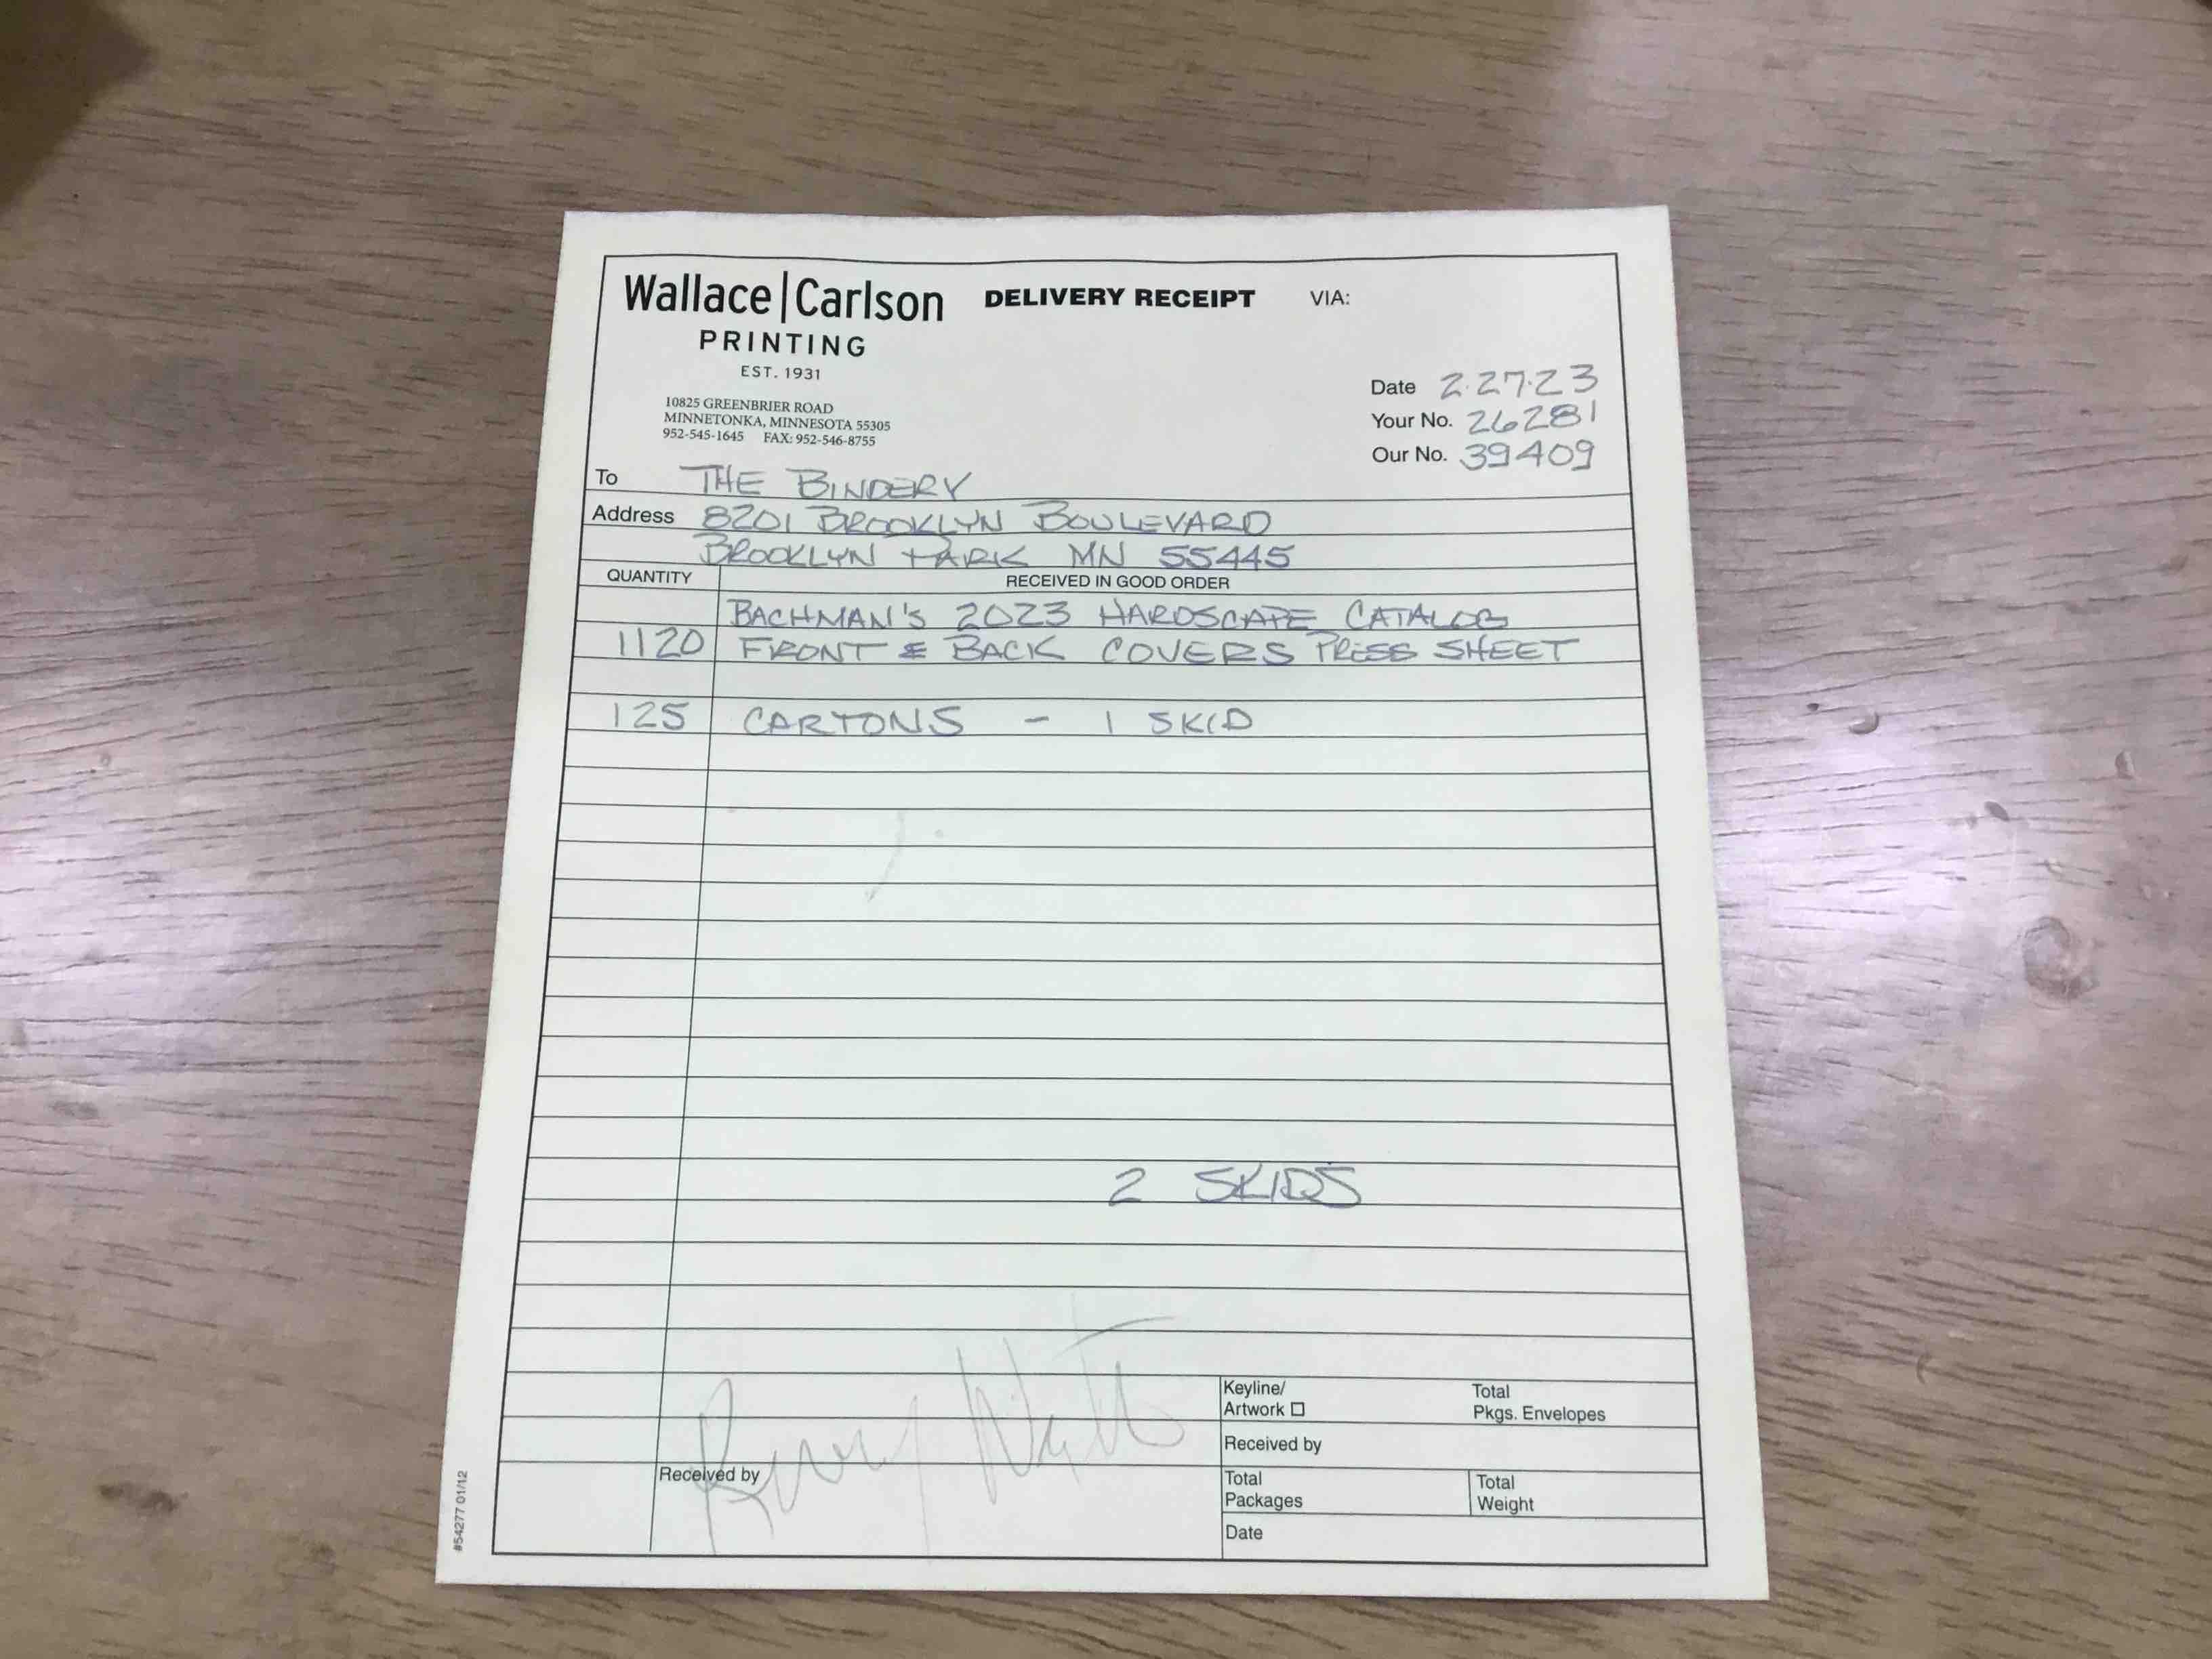 Wallace|Carlson DELIVERY RECEIPT VIA:
PRINTING
EST. 1931
10825 GREENBRIER ROAD
MINNETONKA, MINNESOTA 55305
952-545-1645 FAX: 952-546-8755
Date 2·27·23
Your No. 26281
Our No. 39409
To THE BINDERY
Address 8201 BROOKLYN BOULEVARD
BROOKLYN PARK MN 55445
QUANTITY RECEIVED IN GOOD ORDER
BACHMAN'S 2023 HARDSCAPE CATALOG
1120 FRONT & BACK COVERS PRESS SHEET
125 CARTONS - 1 SKID
2 SKIDS
Received by
Keyline/
Artwork
Total
Pkgs. Envelopes
Received by
Total
Packages
Total
Weight
Date
#54277 01/12